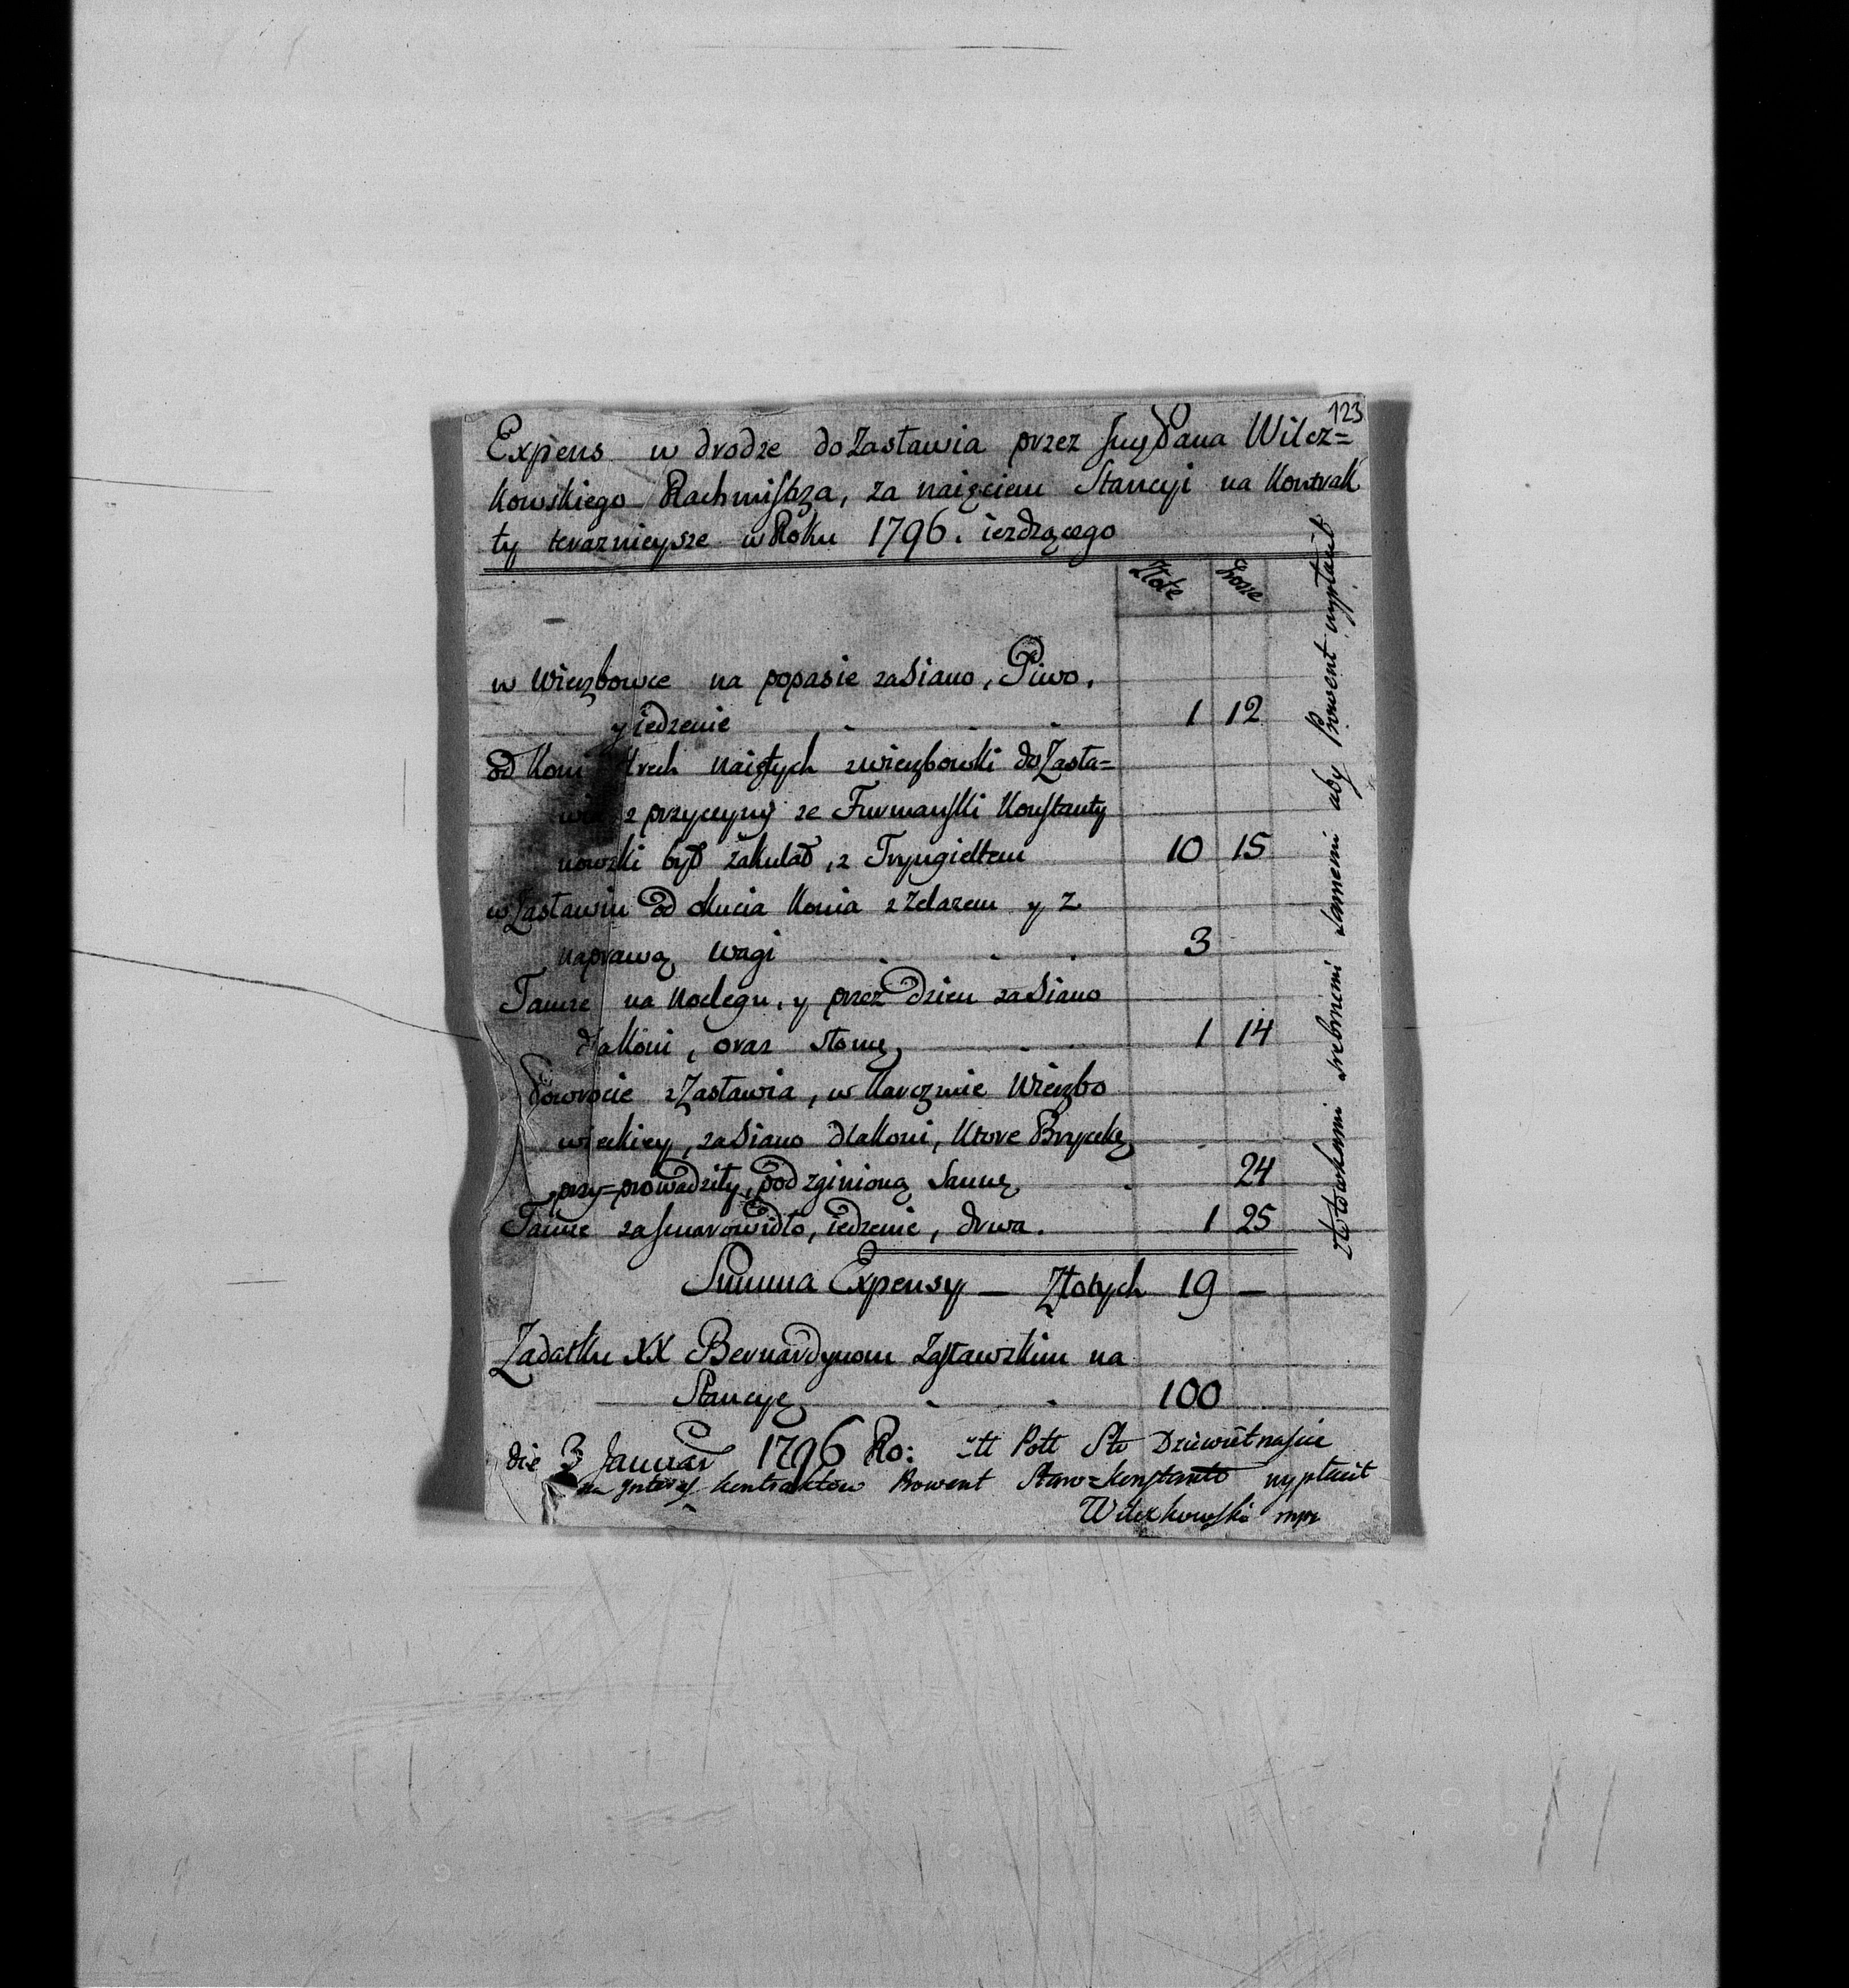 123
Expens w drodze do Zasławia przez Jmci Pana Wilcz=
kowskiego Rachmistrza, za naięciem Stancyi na Kontrak
ty terazniejsze w Roku 1796. iezdzącego
Złote Grosze
w Wierzbowce na popasie za Siano, Piwo,
y iedzenie 1 12
od Koni trzech naiętych z Wierzbowki do Zasła=
wia z przyczyny ze Furmański Konstanty
nowski był zakulał, z Tryngieltem 10 15
w Zasławiu od okucia Konia z Zelazem y z
naprawą wagi 3
Tamze na Noclegu, y przez Dzien za Siano
dla Koni, oraz słomę 1 14
Powrocie z Zasławia, w Karczmie Wierzbo
wieckiey, za Siano dla Koni, Ktore Bryczkę
przy=prowadziły, pod zginioną Sannę 24
Tamze za Smarowidło, iedzenie, drwa. 1 25
Summa Expensy — Złotych 19 —
Zadatku XX Bernardynom Zasławskim na
Stancyę 100
die 3 Januar 1796 Ro: Sto Dziewiętnaście
na interes kontraktow Prowent Staro=Konstanto wypłacił
Wilczkowski mpr
złotówkami srebrnemi samemi aby Prowent wypłacił